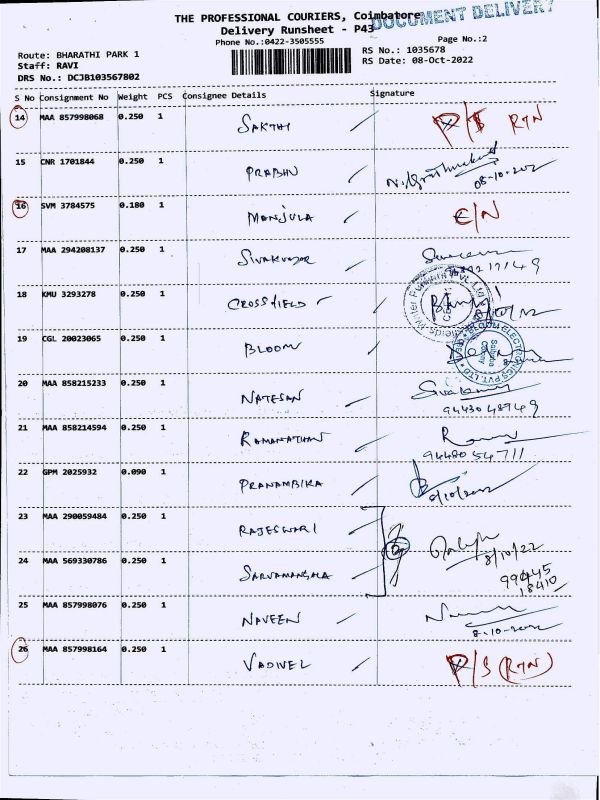 THE PROFESSIONAL COURIERS, Coimbatore
DOCUMENT DELIVERY
Delivery Runsheet - P43
Phone No.:0422-3505555
Page No.:2
Route: BHARATHI PARK 1
RS No.: 1035678
Staff: RAVI
RS Date: 08-Oct-2022
DRS No.: DCJB103567802
S No Consignment No Weight PCS Consignee Details Signature
14 MAA 857998068 0.250 1 SAKTHI P/S RTN
15 CNR 1701844 0.250 1 PRABHU
08-10-2022
16 SVM 3784575 0.180 1 MONJULA C/N
17 MAA 294208137 0.250 1 SIVAKUMAR
18 KMU 3293278 0.250 1 CROSSFIELD
19 CGL 20023065 0.250 1 BLOOM
BLOOM ELECTRONICS PVT. LTD
Saibaba Colony
20 MAA 858215233 0.250 1 NATESAN
9443048949
21 MAA 858214594 0.250 1 RAMANATHAN
9448054711
22 GPM 2025932 0.090 1 PRANAMBIKA
8/10/2022
23 MAA 290059484 0.250 1 RAJESWARI
8/10/22
24 MAA 569330786 0.250 1 SARVAMANGALA
99445
18410
25 MAA 857998076 0.250 1 NAVEEN
8-10-2022
26 MAA 857998164 0.250 1 VADIVEL P/S (RTN)